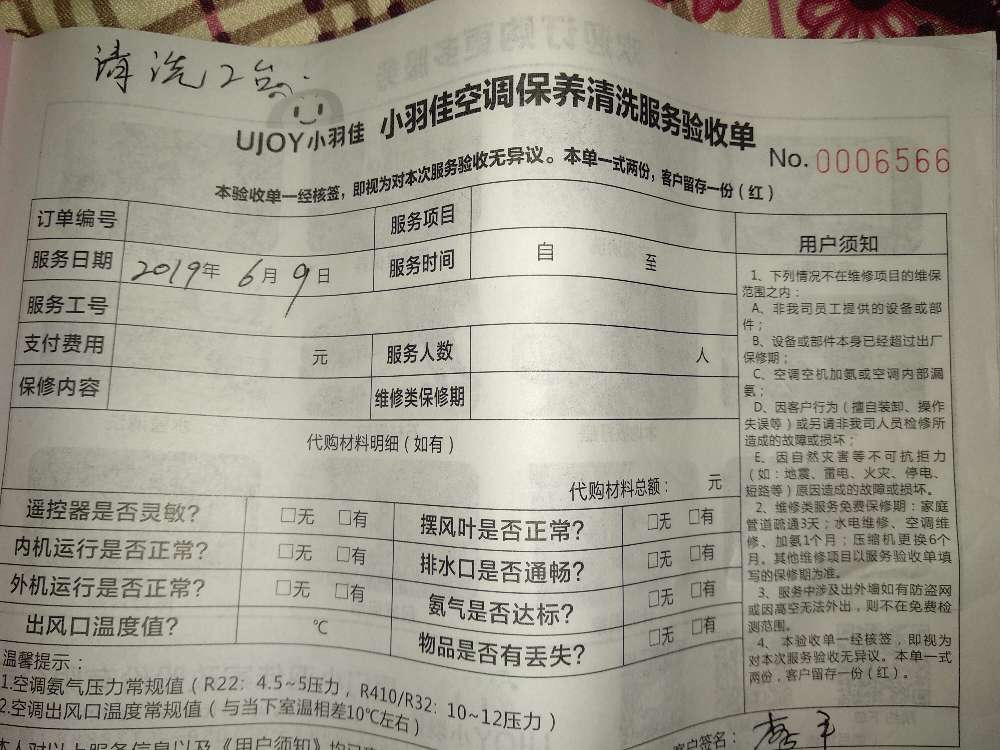 清洗2台
UJOY小羽佳 小羽佳空调保养清洗服务验收单
No. 0006566
本验收单一经核签，即视为对本次服务验收无异议。本单一式两份，客户留存一份（红）
订单编号 服务项目
服务日期 2019年 6月 9日 服务时间 自 至
服务工号
支付费用 元 服务人数 人
保修内容 维修类保修期
代购材料明细（如有）
代购材料总额： 元
遥控器是否灵敏？ □无 □有 摆风叶是否正常？ □无 □有
内机运行是否正常？ □无 □有 排水口是否通畅？ □无 □有
外机运行是否正常？ □无 □有 氨气是否达标？ □无 □有
出风口温度值？ ℃ 物品是否有丢失？ □无 □有
用户须知
1、下列情况不在维修项目的维保
范围之内：
A、非我司员工提供的设备或部
件；
B、设备或部件本身已经超过出厂
保修期；
C、空调空机加氨或空调内部漏
氨；
D、因客户行为（擅自装卸、操作
失误等）或另请非我司人员检修所
造成的故障或损坏；
E、因自然灾害等不可抗拒力
（如：地震、雷电、火灾、停电、
短路等）原因造成的故障或损坏。
2、维修类服务免费保修期：家庭
管道疏通3天；水电维修、空调维
修、加氨1个月；压缩机更换6个
月。其他维修项目以服务验收单填
写的保修期为准。
3、服务中涉及出外墙如有防盗网
或因高空无法外出，则不在免费检
测范围。
4、本验收单一经核签，即视为
对本次服务验收无异议。本单一式
两份，客户留存一份（红）。
温馨提示：
1.空调氨气压力常规值（R22：4.5~5压力，R410/R32：10~12压力）
2.空调出风口温度常规值（与当下室温相差10℃左右）
本人对以上服务信息以及《用户须知》均已
客户签名：